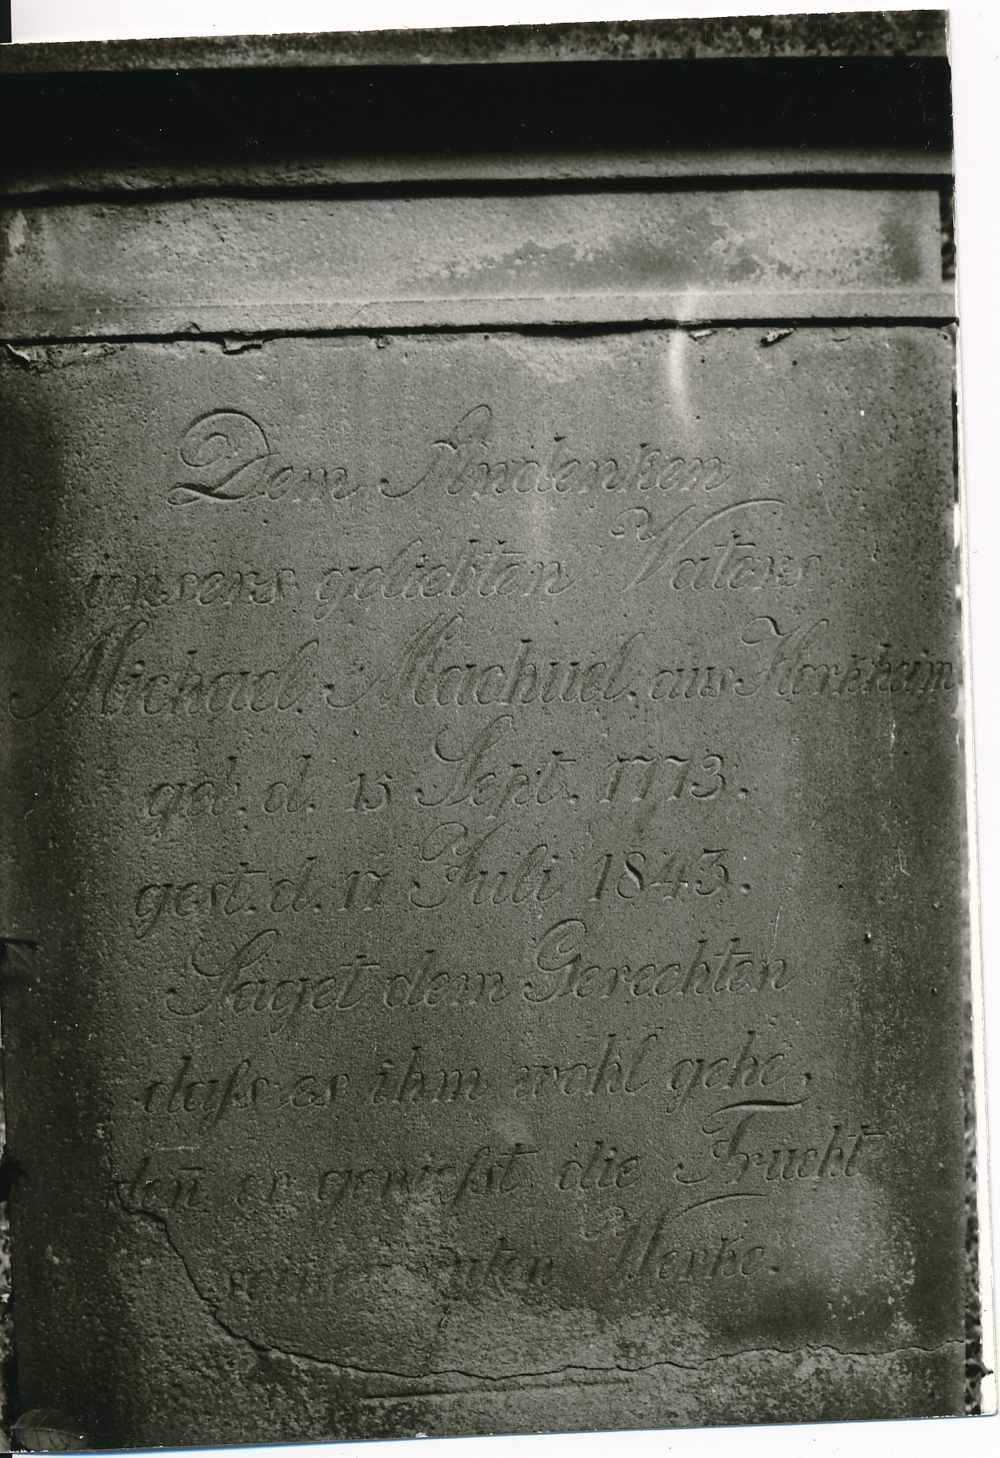 Dem Andenken
unsers geliebten Vaters
Michael Machuel aus Horkheim
geb. d. 15 Sept. 1773.
gest. d. 17 Juli 1843.
Saget dem Gerechten
daſs es ihm wohl gehe,
deñ er genieſst die Frucht
Werke.